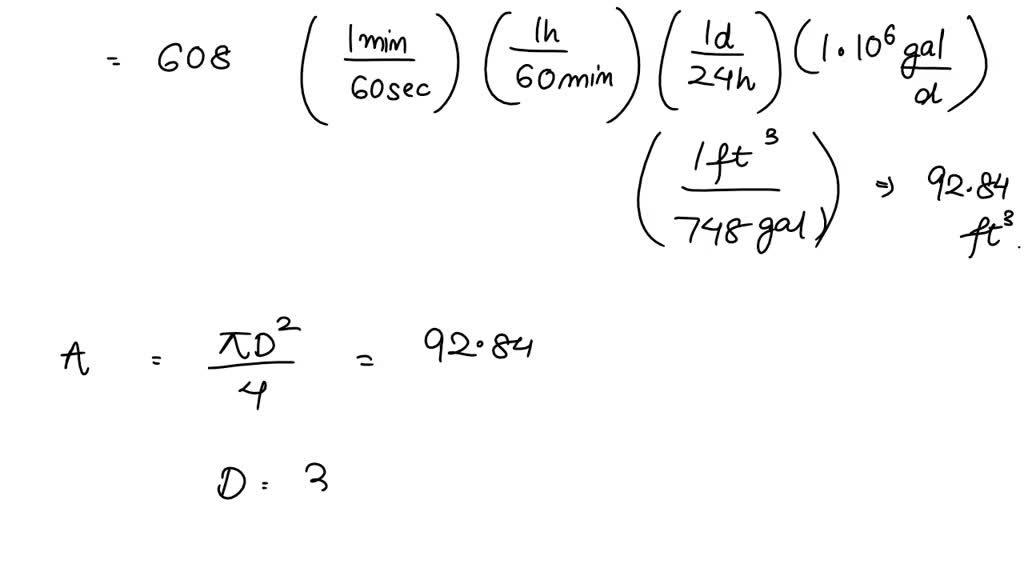 = 608 (1min/60sec) (1h/60min) (1d/24h) (1·10⁶ gal/d)
(1ft³/748gal) ⇒ 92.84 ft³.
A = πD²/4 = 92.84
D = 3